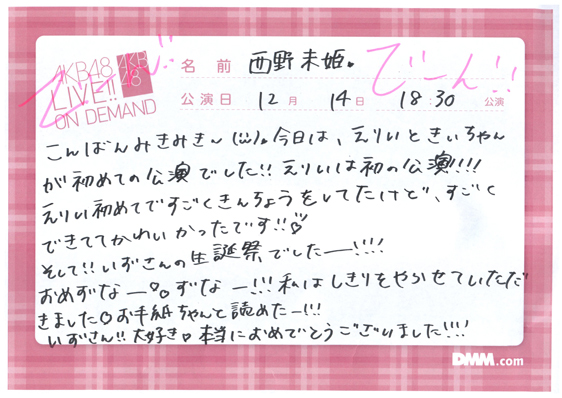 AKB48
LIVE!!
ON DEMAND
AKB
48
名前 西野未姫。
でーん!!
公演日 12月 14日 18:30 公演
こんばんみきみきー(ü)。今日は、えりいときぃちゃん
が初めての公演でした!! えりいは初の公演!!!
えりい初めてですごくきんちょうをしてたけど、すごく
できててかわいかったです!!♡
そして!! いずさんの生誕祭でしたー!!!
おめずなー。ずなー!!! 私はしきりをやらせていただ
きました♡お手紙ちゃんと読めたー!!!
いずさん!! 大好き♡本当におめでとうございました!!!
DMM.com